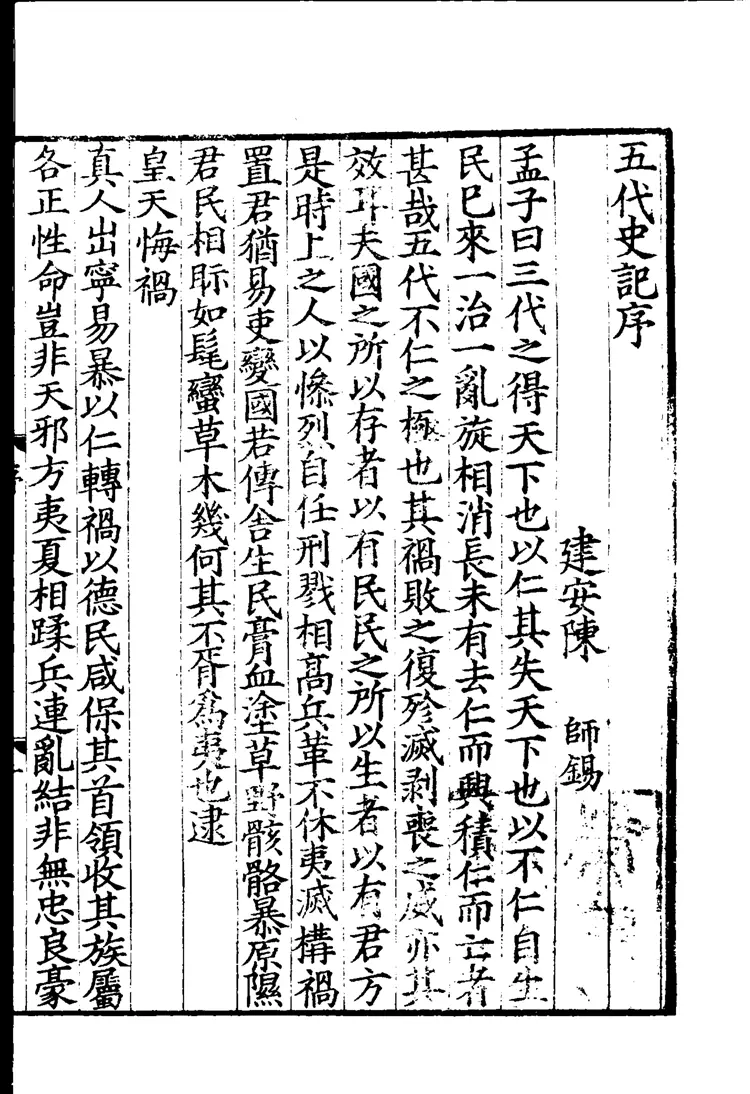 五代史記序
建安陳 師錫
孟子曰三代之得天下也以仁其失天下也以不仁自生
民已來一治一亂旋相消長未有去仁而興積仁而亡者
甚哉五代不仁之極也其禍敗之復殄滅剥喪之威亦其
效耳夫國之所以存者以有民民之所以生者以有君方
是時上之人以慘烈自任刑戮相高兵革不休夷滅構禍
置君猶易吏變國若傳舍生民膏血塗草野骸骼暴原隰
君民相眎如髦蠻草木幾何其不胥爲夷也逮
皇天悔禍
真人出寧易暴以仁轉禍以德民咸保其首領收其族屬
各正性命豈非天邪方夷夏相蹂兵連亂結非無忠良豪